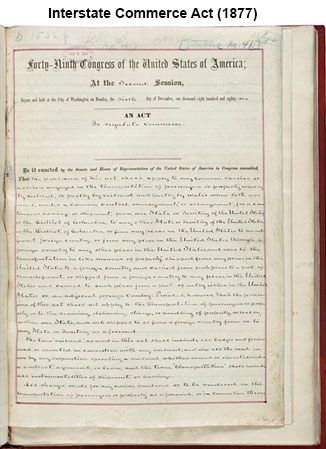 Interstate Commerce Act (1877)
Forty-Ninth Congress of the United States of America;
At the Second Session,
Begun and held at the City of Washington on Monday, the sixth day of December, one thousand eight hundred and eighty-six
AN ACT
To regulate commerce.
Be it enacted by the Senate and House of Representatives of the United States of America in Congress assembled,
That the provisions of this act shall apply to any common carrier or
carriers engaged in the transportation of passengers or property wholly
by railroad, or partly by railroad and partly by water when both are
used, under a common control, management, or arrangement, for a con-
tinuous carriage or shipment, from one State or Territory of the United States,
or the District of Columbia, to any other State or Territory of the United States,
or the District of Columbia, or from any place in the United States to an adja-
cent foreign country, or from any place in the United States through a
foreign country to any other place in the United States, and also to the
transportation in like manner of property shipped from any place in the
United States to a foreign country and carried from such place to a port of
transshipment, or shipped from a foreign country to any place in the United
States and carried to such place from a port of entry either in the United
States or an adjacent foreign country: Provided, however, That the provis-
ions of this act shall not apply to the transportation of passengers or prop-
erty, or to the receiving, delivering, storage, or handling of property, wholly
within one State, and not shipped to or from a foreign country from or to
any State or Territory as aforesaid.
The term "railroad" as used in this act shall include all bridges and ferries
used or operated in connection with any railroad, and also all the road in
use by any corporation operating a railroad, whether owned or operated under
a contract, agreement, or lease; and the term "transportation" shall include
all instrumentalities of shipment or carriage.
All charges made for any service rendered or to be rendered in the
transportation of passengers or property as aforesaid, or in connection there-